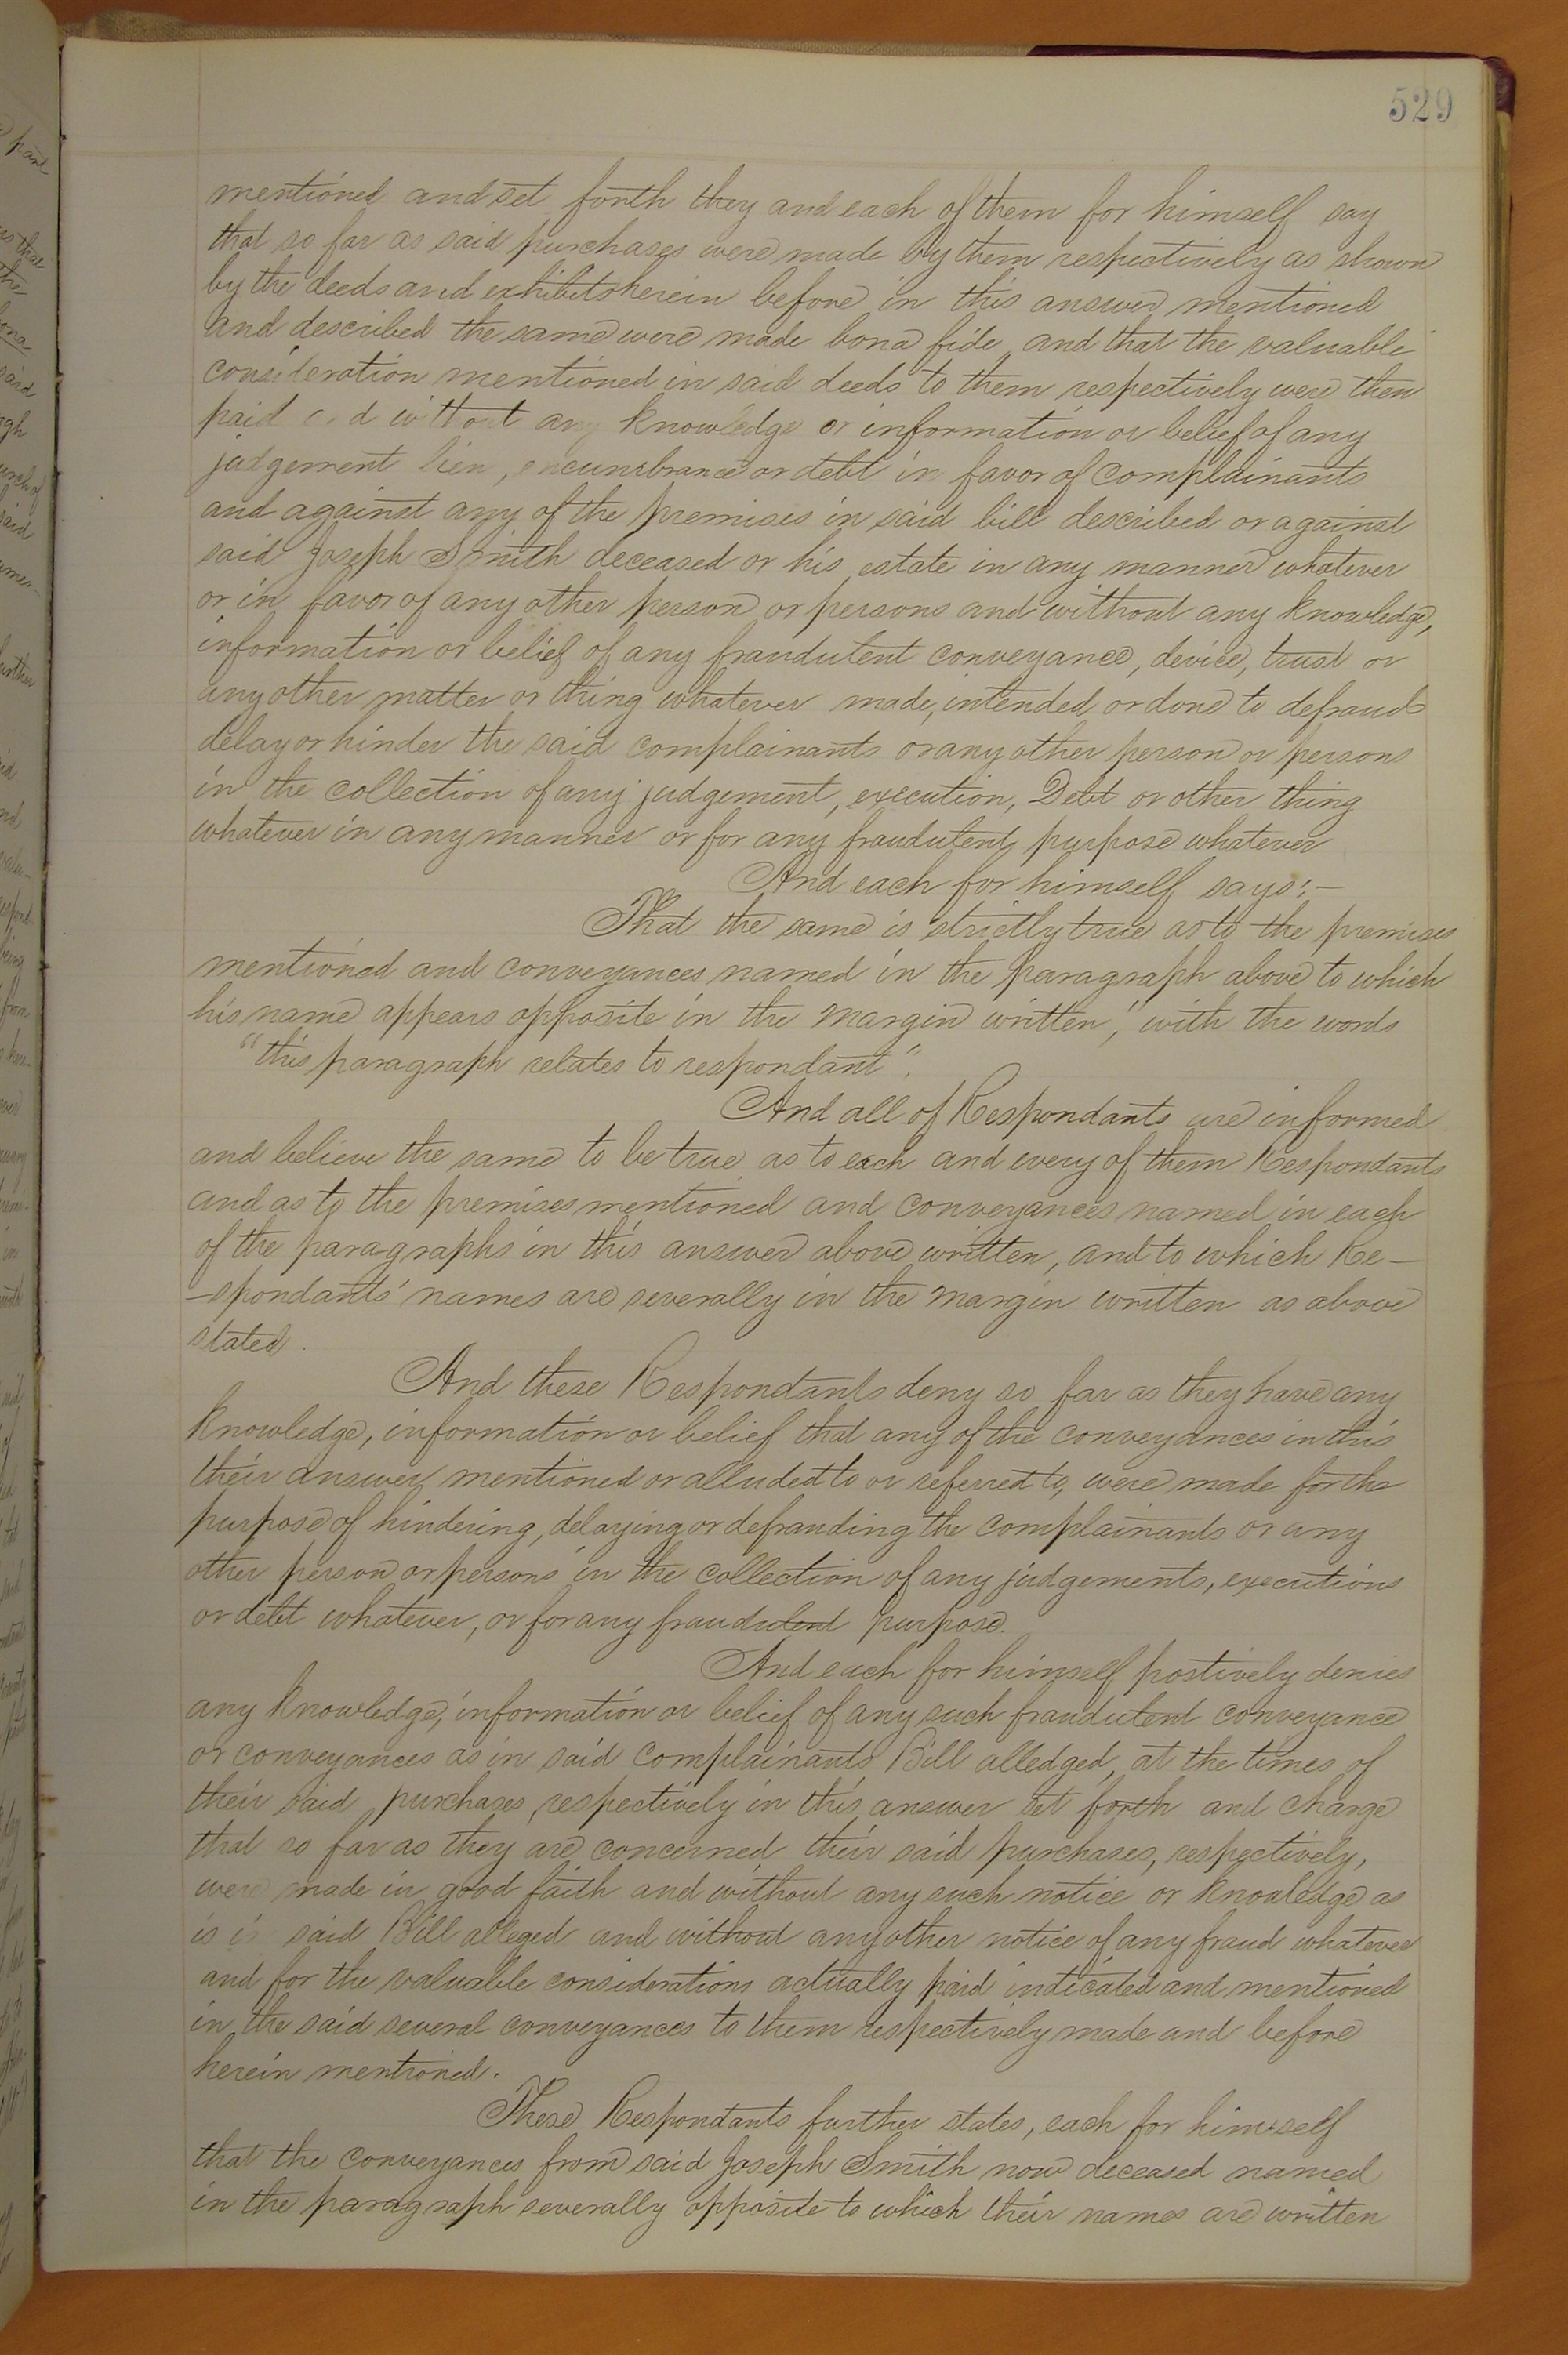 529
mentioned and set forth they and each of them for himself say
that so far as said purchases were made by them respectively as shown
by the deeds and exhibits herein before in this answer mentioned
and described the same were made bona fide and that the valuable
consideration mentioned in said deeds to them respectively were then
paid and without any knowledge or information or belief of any
judgement lien, encumbrance or debt in favor of complainants
and against any of the premises in said bill described or against
said Joseph Smith deceased or his estate in any manner whatever
or in favor of any other person or persons and without any knowledge,
information or belief of any fraudulent conveyance, device, trust or
any other matter or thing whatever made, intended or done to defraud
delay or hinder the said complainants or any other person or persons
in the collection of any judgement, execution, Debt or other thing
whatever in any manner or for any fraudulent purpose whatever
And each for himself says:-
That the same is strictly true as to the premises
mentioned and conveyances named in the paragraph above to which
his name appears opposite in the margin written," with the words
"this paragraph relates to respondant".
And all of Respondants are informed
and believe the same to be true as to each and every of them Respondants
and as to the premises mentioned and conveyances named in each
of the paragraphs in this answer above written, and to which Re-
-spondants' names are severally in the margin written as above
stated.
And these Respondants deny so far as they have any
knowledge, information or belief that any of the conveyances in this
their answer mentioned or alluded to or referred to, were made for the
purpose of hindering, delaying or defrauding the complainants or any
other person or persons in the collection of any judgements, executions
or debt whatever, or for any fraudulent purpose.
And each for himself postively denies
any knowledge, information or belief of any such fraudulent conveyance
or conveyances as in said complainants Bill alledged, at the times of
their said purchases, respectively in this answer set forth and charge
that so far as they are concerned their said purchases, respectively,
were made in good faith and without any such notice or knowledge as
is in said Bill alleged and without any other notice of any fraud whatever
and for the valuable considerations actually paid indicated and mentioned
in the said several conveyances to them respectively made and before
herein mentioned.
These Respondants further states, each for himself
that the conveyances from said Joseph Smith now deceased named
in the paragraph severally opposite to which their names are written